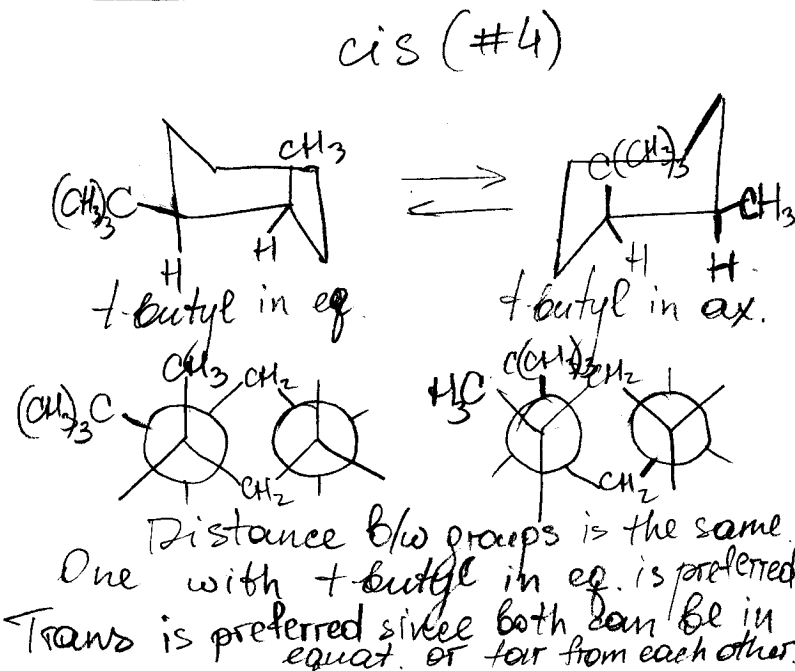 cis (#4)
CH3 C(CH3)3
(CH3)3C CH3
H H H H
t-butyl in eq. t-butyl in ax.
CH3 CH2 C(CH3)3 CH2
(CH3)3C H3C
CH2 CH2
Distance b/w groups is the same.
One with t-butyl in eq. is preferred
Trans is preferred since both can be in
equat. or far from each other.